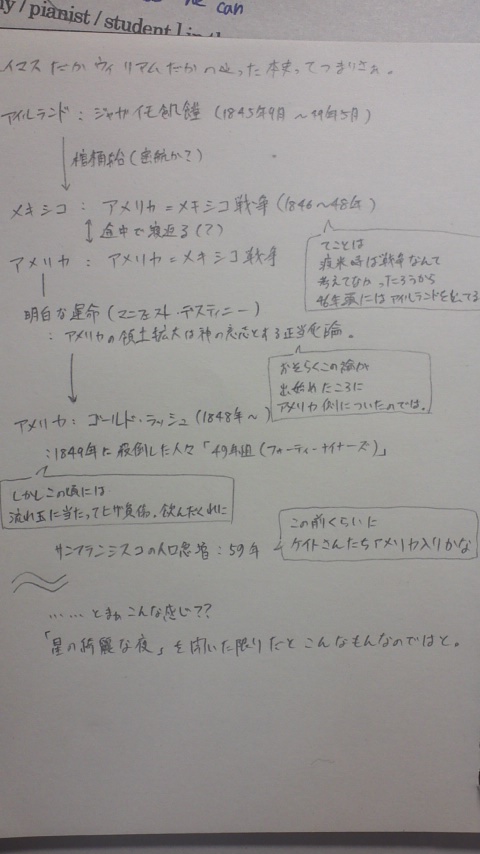 he can
ny / pianist / student
イマスだかウィリアムだかの辿った本史ってつまりさぁ。
アイルランド：ジャガイモ飢饉（1845年9月～49年5月）
棺桶船（密航かて？）
メキシコ：アメリカ＝メキシコ戦争（1846～48年）
途中で寝返る（？）
てことは
渡米時は戦争なんて
考えてなかっただろうから
46年頭にはアイルランドを出てる
アメリカ：アメリカ＝メキシコ戦争
明白な運命（マニフェスト・デスティニー）
：アメリカの領土拡大は神の意志とする正当化論。
おそらくこの論が
出始めたころに
アメリカ側についたのでは。
アメリカ：ゴールド・ラッシュ（1848年～）
：1849年に殺倒した人々「49年組（フォーティーナイナーズ）」
しかしこの頃には
流れ玉に当たってヒザ負傷。飲んだくれに
サンフランシスコの人口急増：59年
この前くらいに
ケイトさんたちアメリカ入りかな
……とまぁこんな感じ？？
「星の綺麗な夜」を聞いた限りだとこんなもんなのではと。